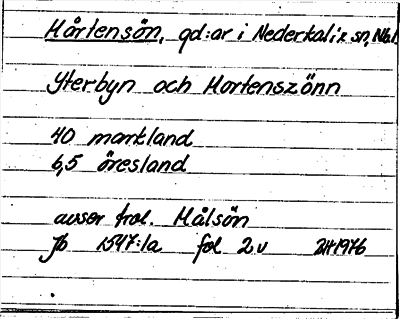 Mårtensön, gd:ar i Nederkalix sn, Nb.l.
Ytterbyn och Mortenszönn
40 markland
6,5 öresland
avser trol. Målsön
Jb 1547:1a fol 2v 241976